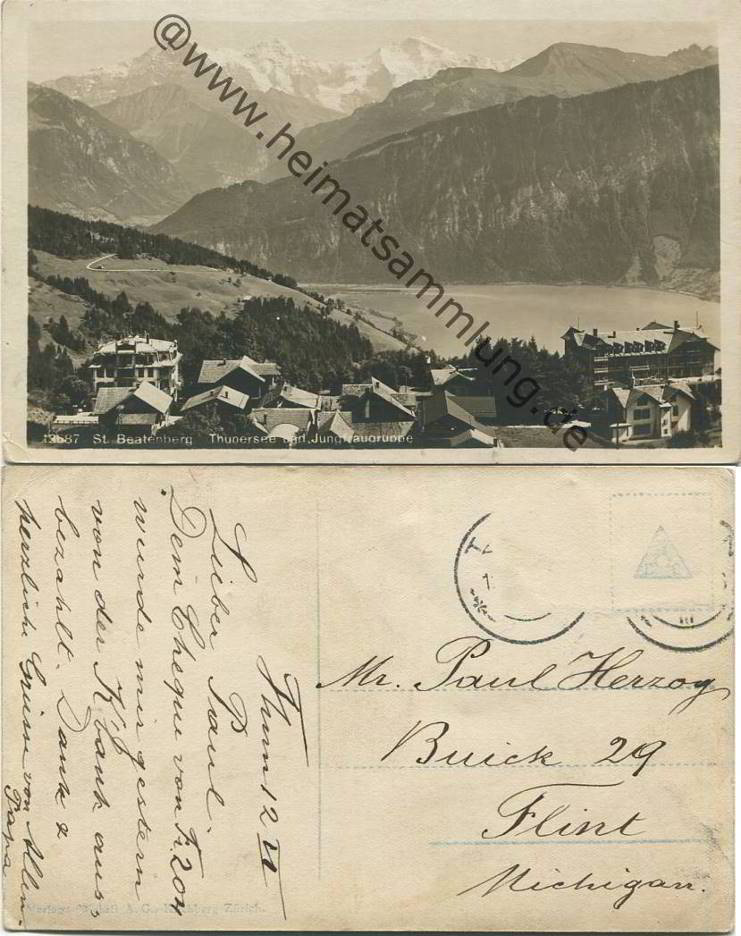 @www.heimatsammlung.de
13587 St. Beatenberg Thunersee und Jungfraugruppe
Thun 12 VI
Lieber Paul.
Dem Cheque von Fr. 204
wurde mir gestern
von der K'Bank aus-
bezahlt. Dank &
herzliche Grüsse von Allen.
Papa
Mr. Paul Herzog
Buick 29
Flint
Michigan.
Zürich.